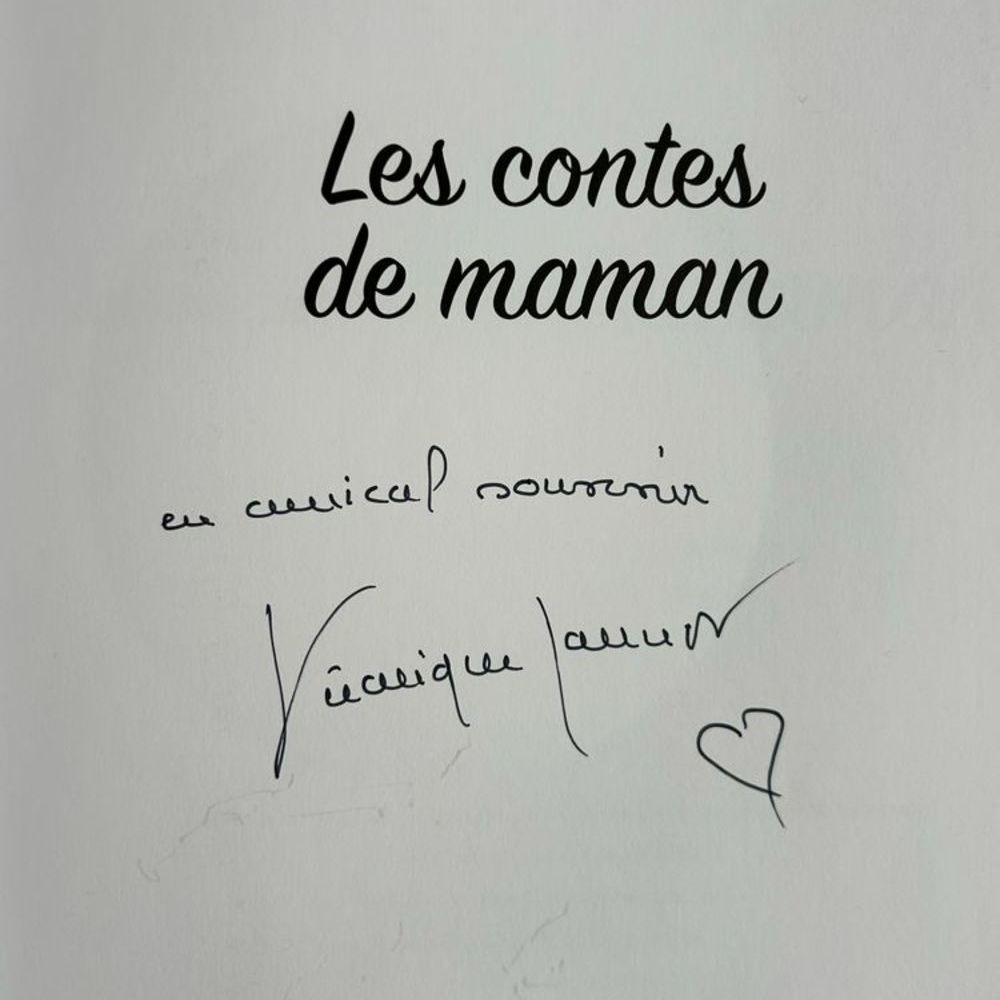 Les contes
de maman
en amical souvenir
Véronique Jannot